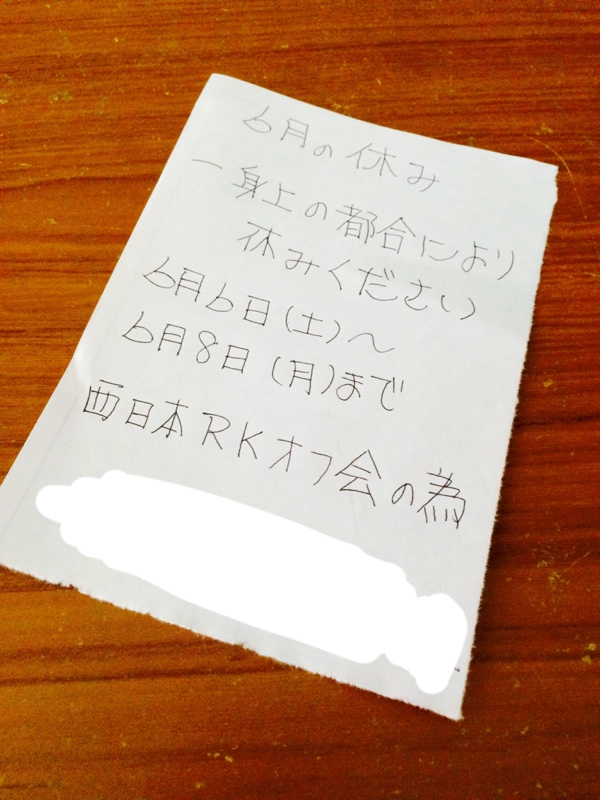 6月の休み
一身上の都合により
休みください
6月6日(土)～
6月8日(月)まで
西日本RKオフ会の為